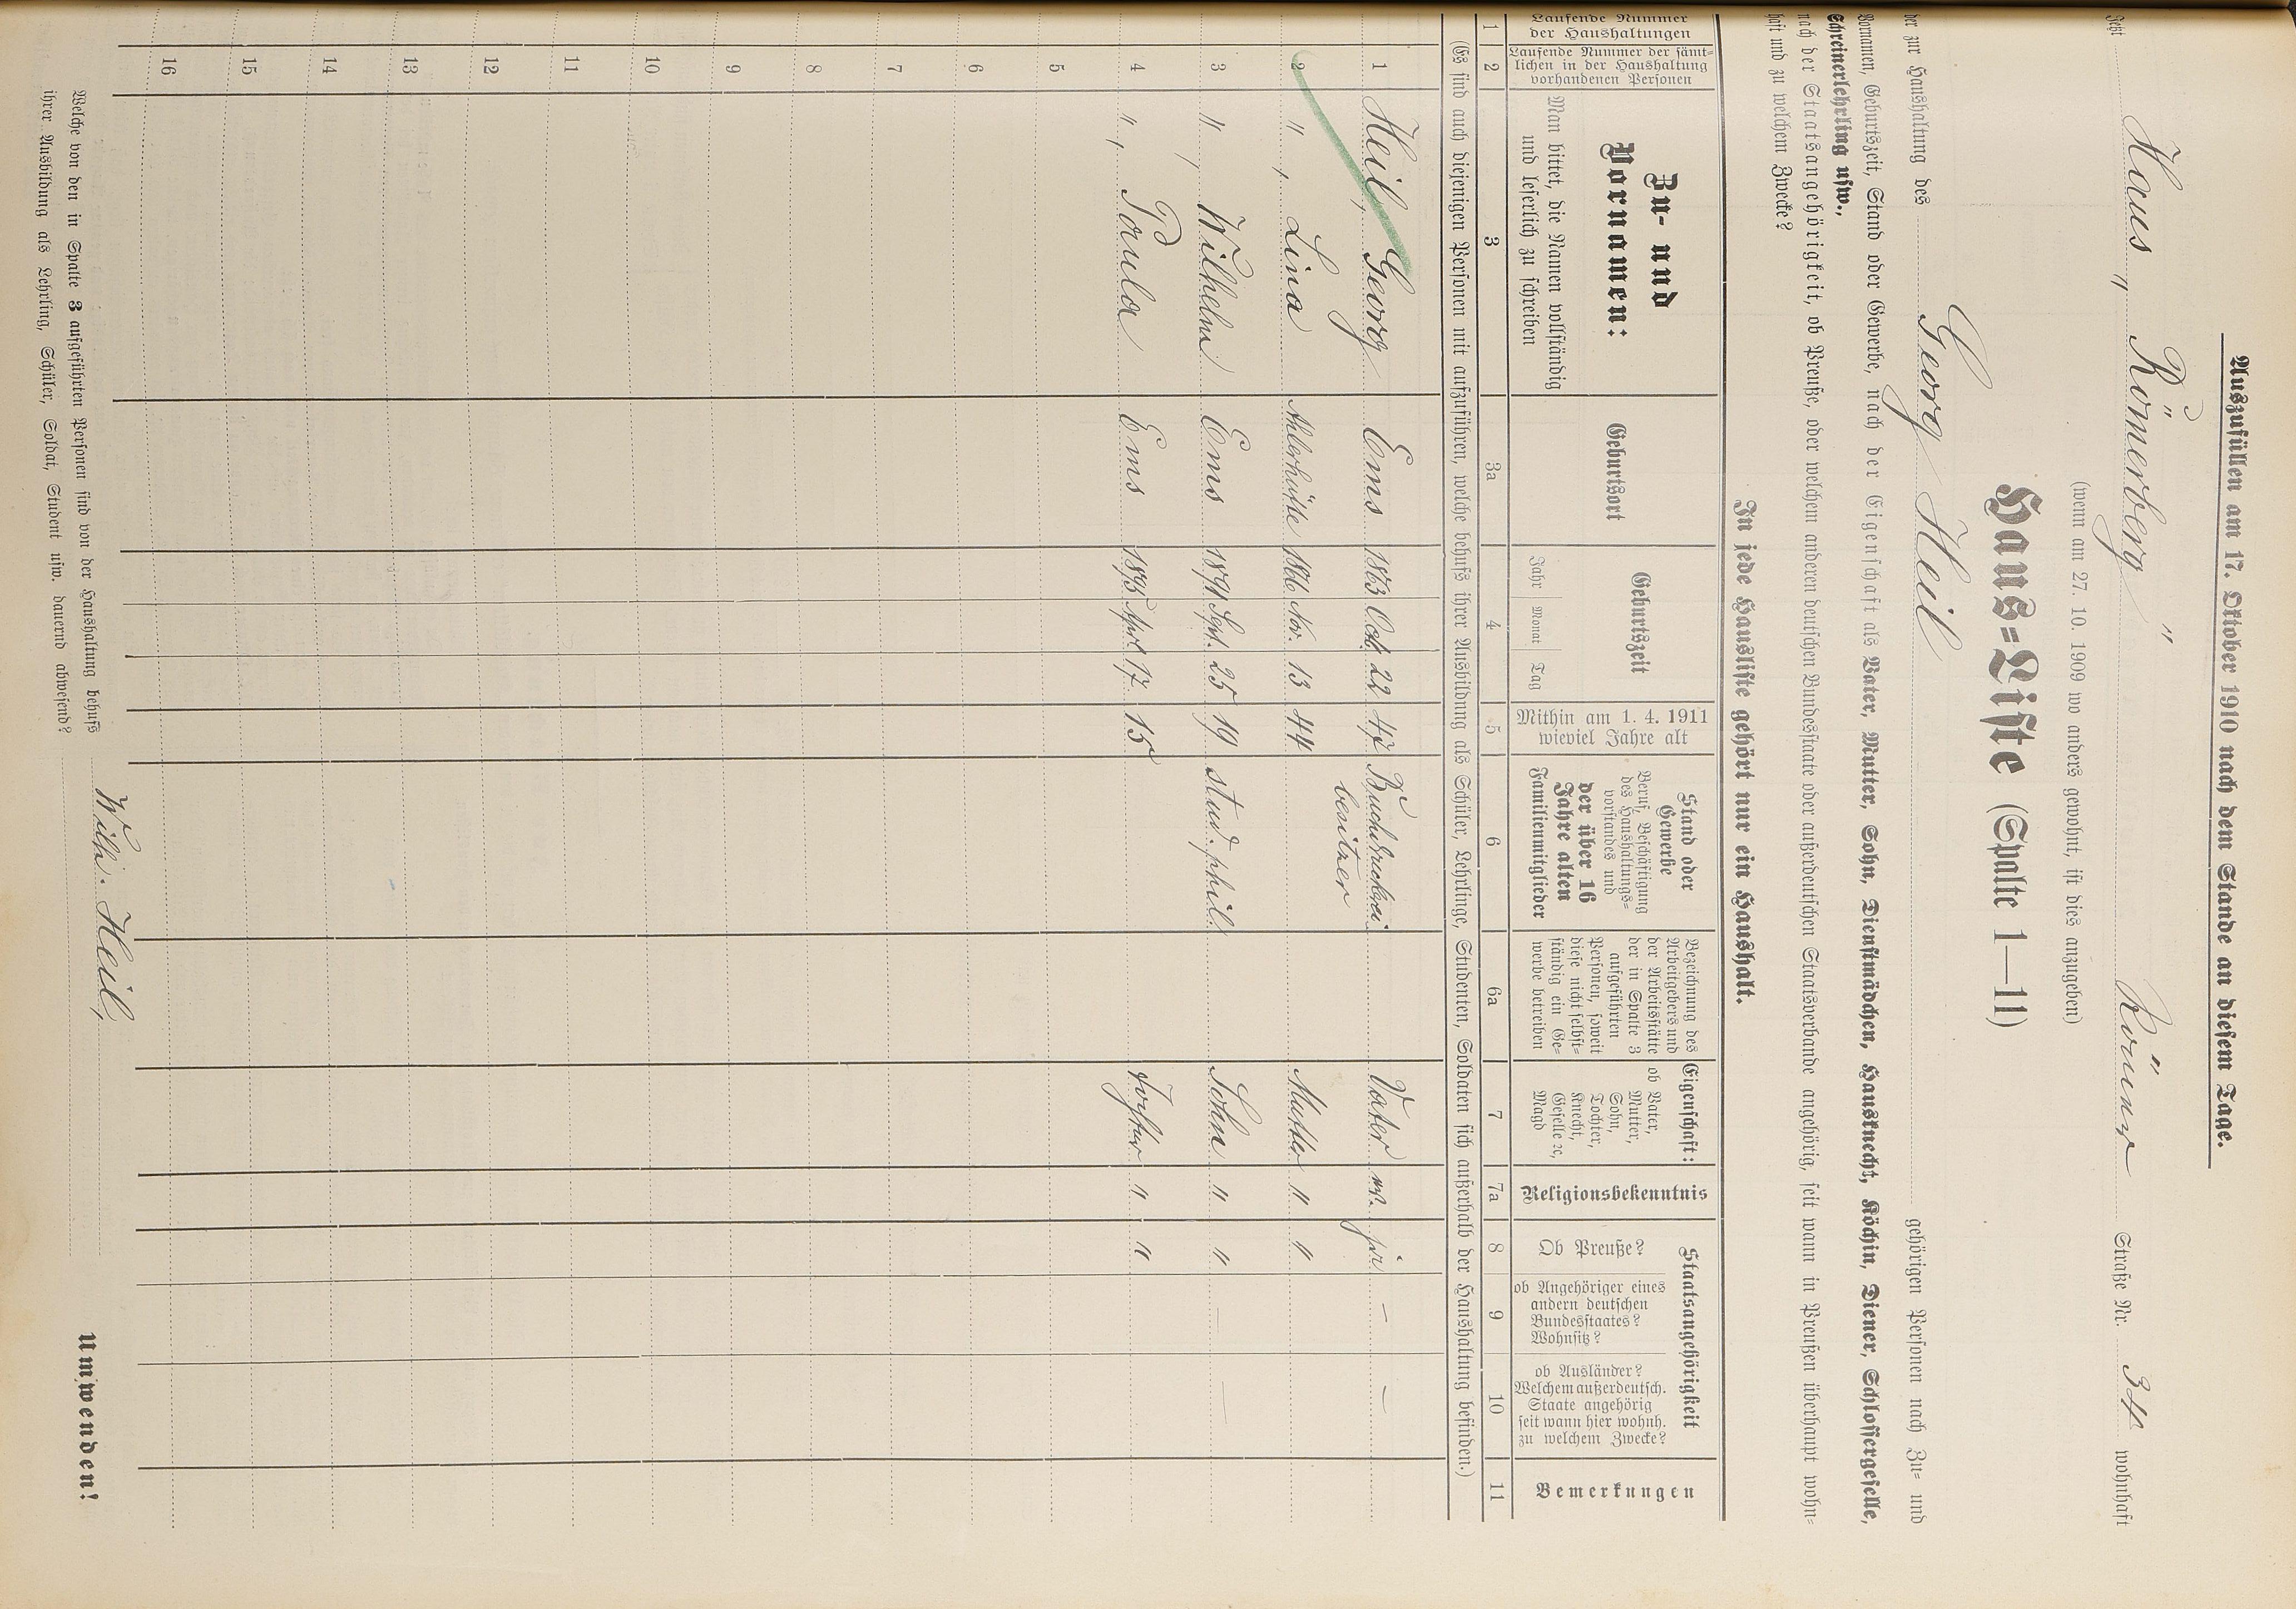 Auszufüllen am 17. Oktober 1910 nach dem Stande an diesem Tage.
Jetzt Haus „Römerberg" Römer Straße Nr. 34 wohnhaft
(wenn am 27. 10. 1909 wo anders gewohnt, ist dies anzugeben)
Haus=Liste (Spalte 1—11)
der zur Haushaltung des Georg Heil gehörigen Personen nach Zu= und
Vornamen, Geburtszeit, Stand oder Gewerbe, nach der Eigenschaft als Vater, Mutter, Sohn, Dienstmädchen, Hausknecht, Köchin, Diener, Schlossergeselle,
Schreinerlehrling usw.,
nach der Staatsangehörigkeit, ob Preuße, oder welchem anderen deutschen Bundesstaate oder außerdeutschen Staatsverbande angehörig, seit wann in Preußen überhaupt wohn=
haft und zu welchem Zwecke?
In jede Hausliste gehört nur ein Haushalt.
Laufende Nummer
der Haushaltungen
Laufende Nummer der sämt=
lichen in der Haushaltung
vorhandenen Personen
Zu- und
Vornamen:
Man bittet, die Namen vollständig
und leserlich zu schreiben
Geburtsort
Geburtszeit
Jahr Monat Tag
Mithin am 1. 4. 1911
wieviel Jahre alt
Stand oder
Gewerbe
Beruf, Beschäftigung
des Haushaltungs=
vorstandes und
der über 16
Jahre alten
Familienmitglieder
Bezeichnung des
Arbeitgebers und
der Arbeitsstätte
der in Spalte 3
aufgeführten
Personen, soweit
diese nicht selbst=
ständig ein Ge=
werbe betreiben
Eigenschaft:
ob Vater,
Mutter,
Sohn,
Tochter,
Knecht,
Geselle ꝛc,
Magd
Religionsbekenntnis
Staatsangehörigkeit
Ob Preuße?
ob Angehöriger eines
andern deutschen
Bundesstaates?
Wohnsitz?
ob Ausländer?
Welchem außerdeutsch.
Staate angehörig
seit wann hier wohnh.
zu welchem Zwecke?
Bemerkungen
1 2 3 3a 4 5 6 6a 7 7a 8 9 10 11
(Es sind auch diejenigen Personen mit aufzuführen, welche behufs ihrer Ausbildung als Schüler, Lehrlinge, Studenten, Soldaten sich außerhalb der Haushaltung befinden.)
1 Heil, Georg Ems 1863 Oct. 22 47 Buchdruckerei Vater ja — —
besitzer
2 ", Lina 1866 Nov. 13 44 Mutter " "
3 ", Wilhelm Ems 1891 Sept. 25 19 stud. phil. Sohn " " — —
4 ", Paula Ems 1895 Apri 17 15 Tochter " "
5
6
7
8
9
10
11
12
13
14
15
16
Welche von den in Spalte 3 aufgeführten Personen sind von der Haushaltung behufs
ihrer Ausbildung als Lehrling, Schüler, Soldat, Student usw. dauernd abwesend?
Wilh. Heil,
Umwenden!